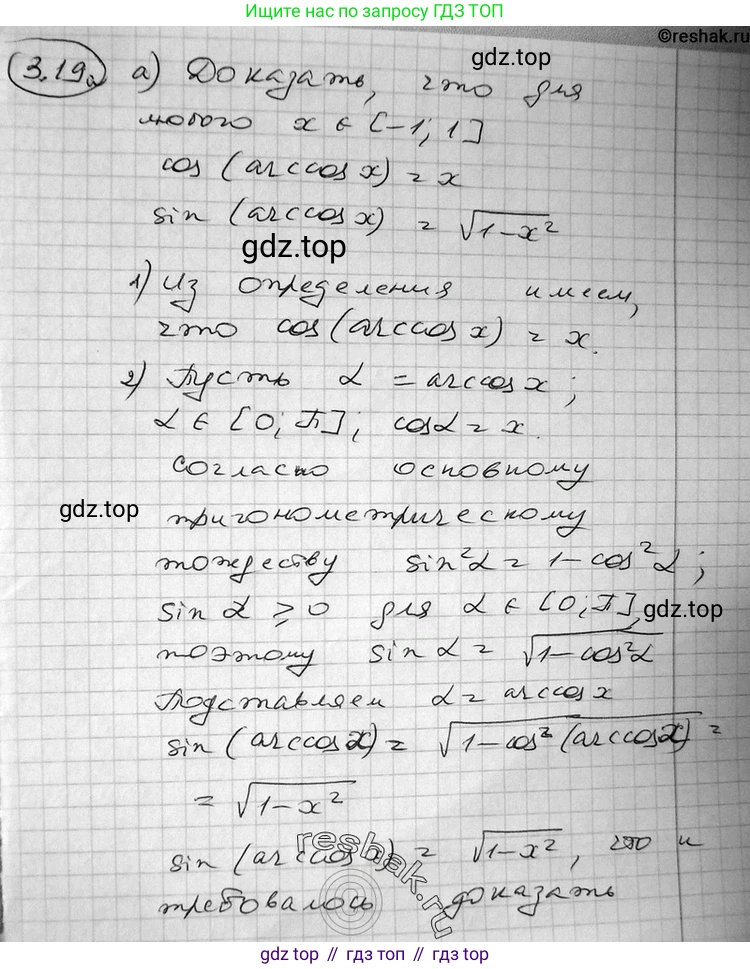 Ищите нас по запросу ГДЗ ТОП
©reshak.ru
gdz.top
3.19а а) Доказать, что для
любого x ∈ [-1; 1]
cos (arccos x) = x
sin (arccos x) = √1-x²
gdz.top
1) Из определения имеем,
что cos(arccos x) = x.
2) Пусть α = arccos x;
α ∈ [0; π]; cosα = x.
согласно основному
gdz.top
тригонометрическому
тождеству sin²α = 1-cos²α;
sin α ⩾ 0 для α ∈ [0; π],
gdz.top
поэтому sin α = √1-cos²α
Подставляем α = arccos x
sin (arccos x) = √1-cos² (arccos x) =
= √1-x²
sin (arccos x) = √1-x², что и
требовалось доказать
reshak.ru
gdz.top // гдз топ // gdz.top